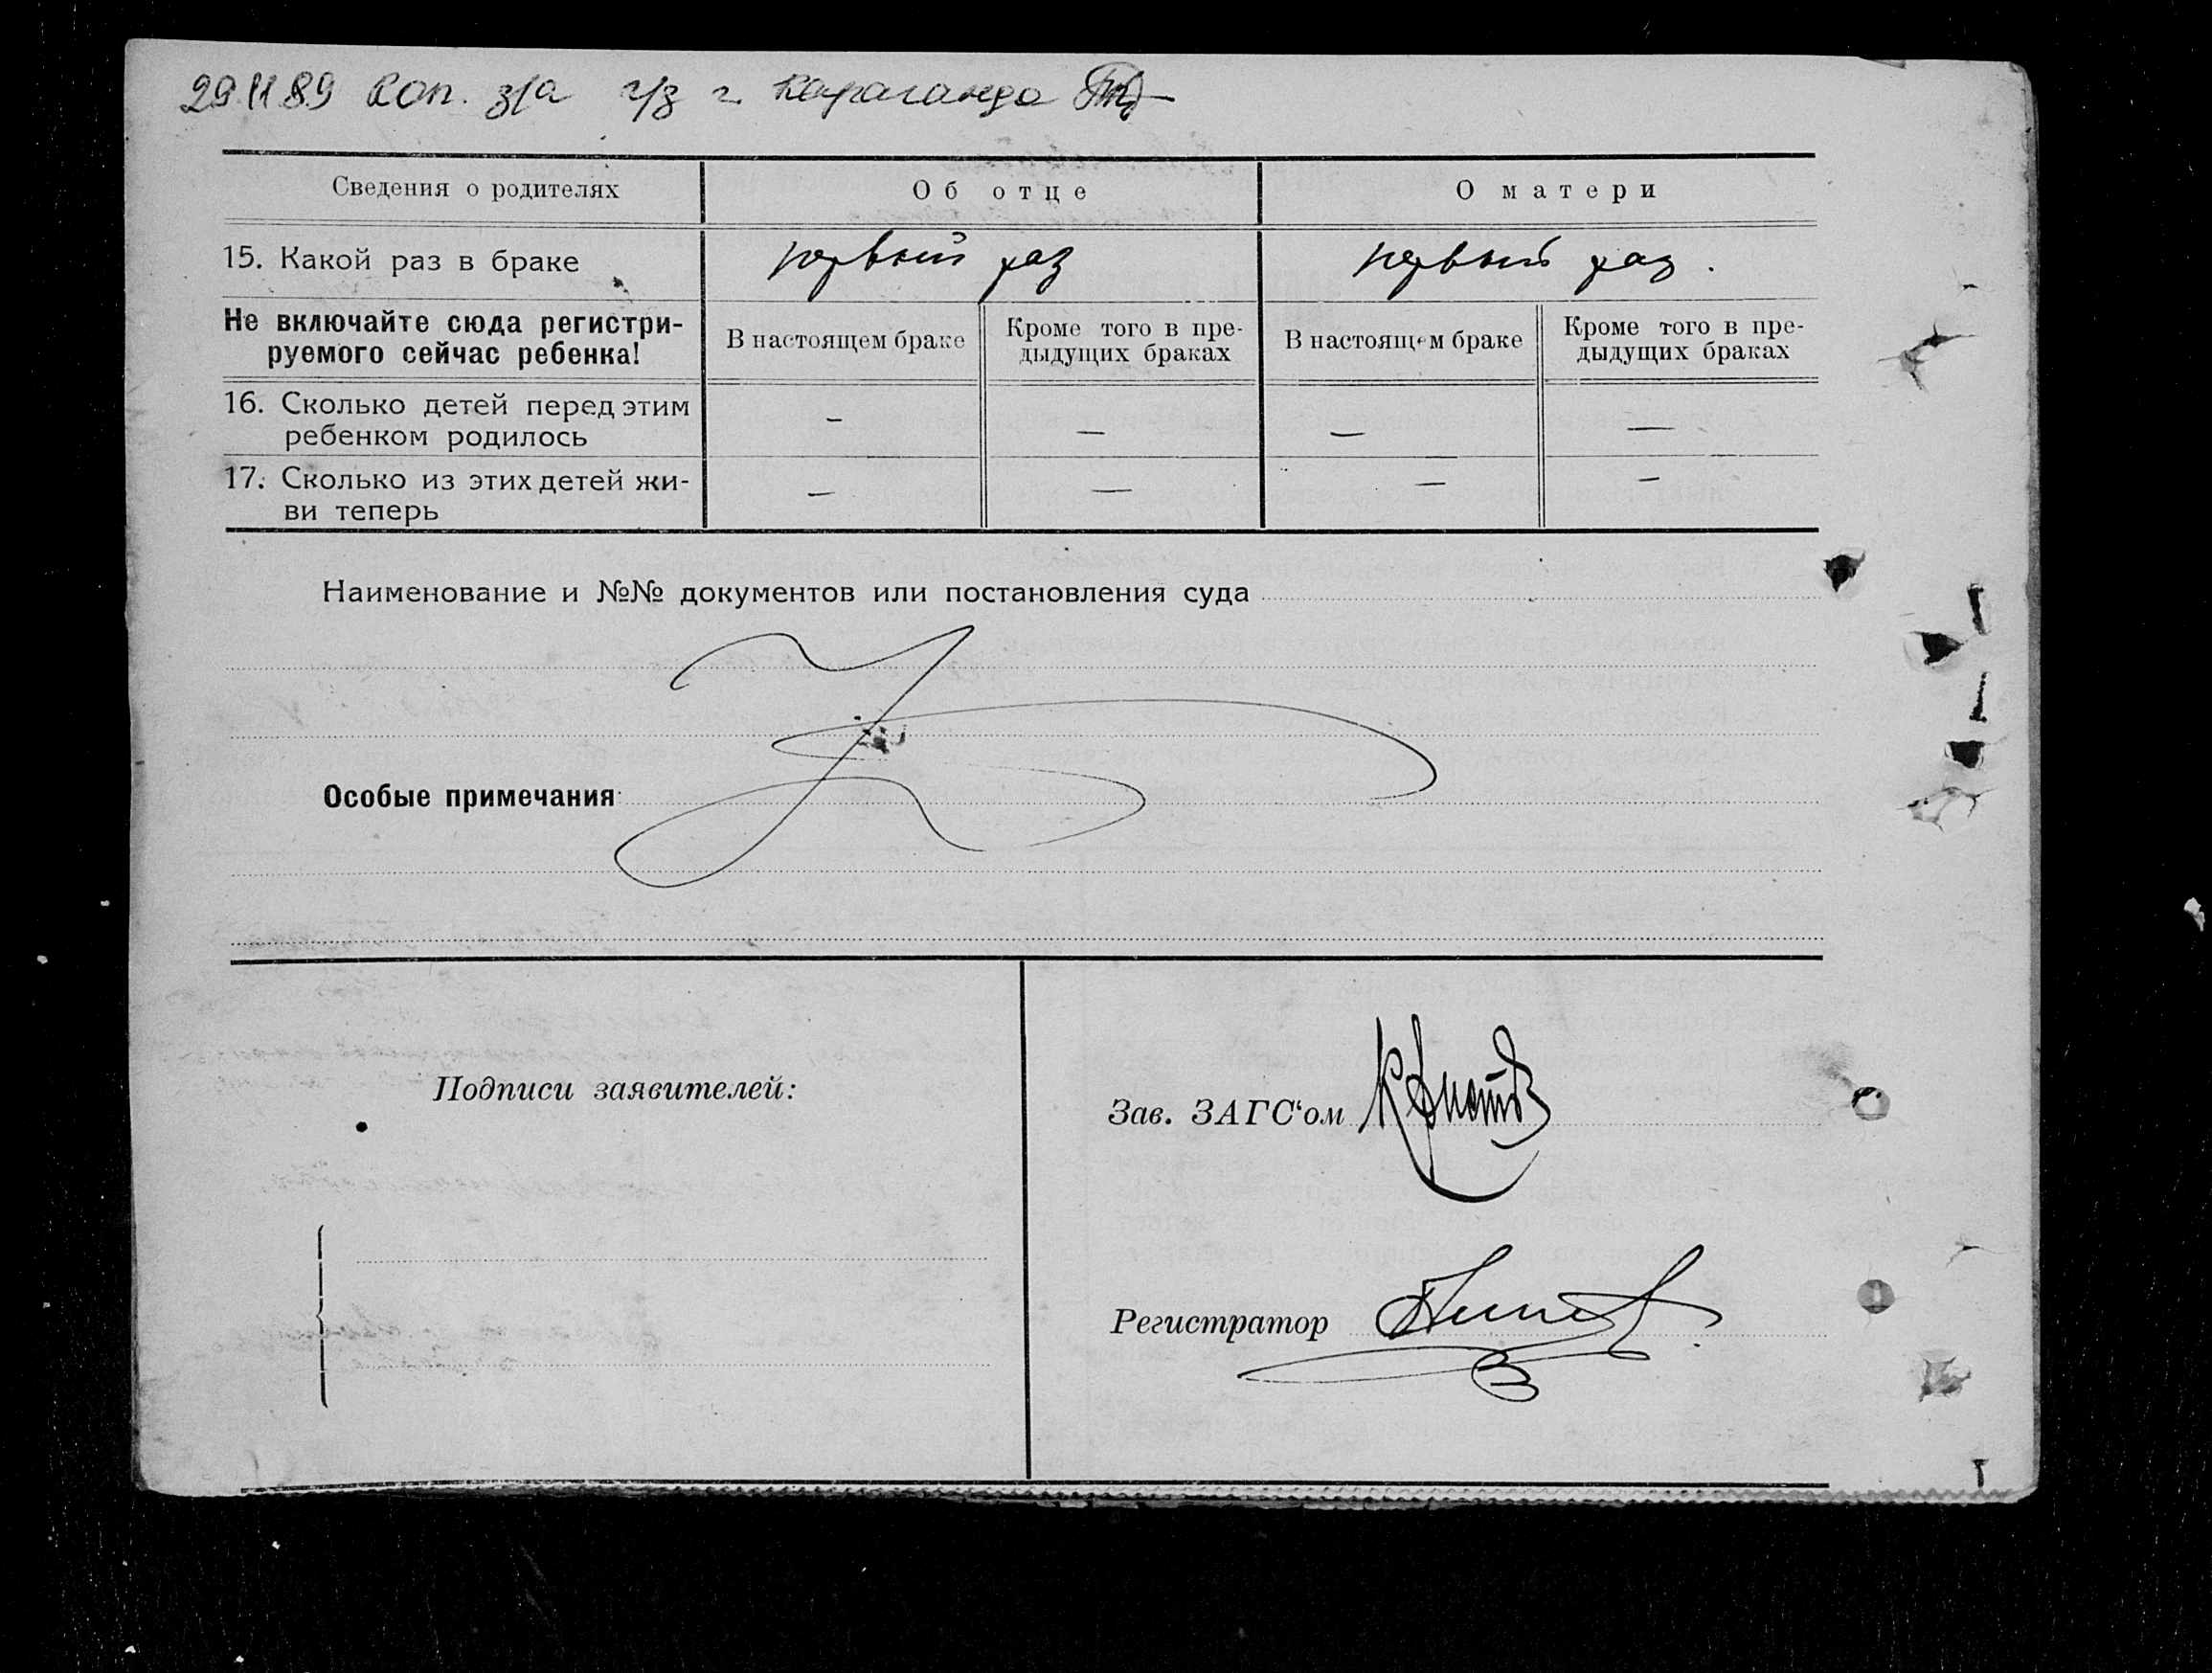 29.11.89 Коп. з/а г/з г. Караганда
Сведения о родителях Об отце О матери
15. Какой раз в браке первый раз первый раз.
Не включайте сюда регистри-
руемого сейчас ребенка!
В настоящем браке Кроме того в пре-
дыдущих браках
В настоящем браке Кроме того в пре-
дыдущих браках
16. Сколько детей перед этим
ребенком родилось — — — —
17. Сколько из этих детей жи-
ви теперь — — — —
Наименование и №№ документов или постановления суда
Особые примечания
Подписи заявителей:
Зав. ЗАГС‘ом
Регистратор